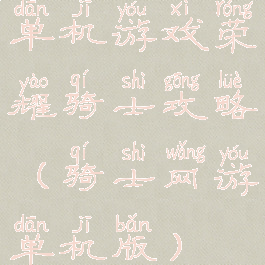 dān jī yóu xì róng
单机游戏荣
yào qí shì gōng lüè
耀骑士攻略
qí shì wǎng yóu
（骑士网游
dān jī bǎn
单机版）